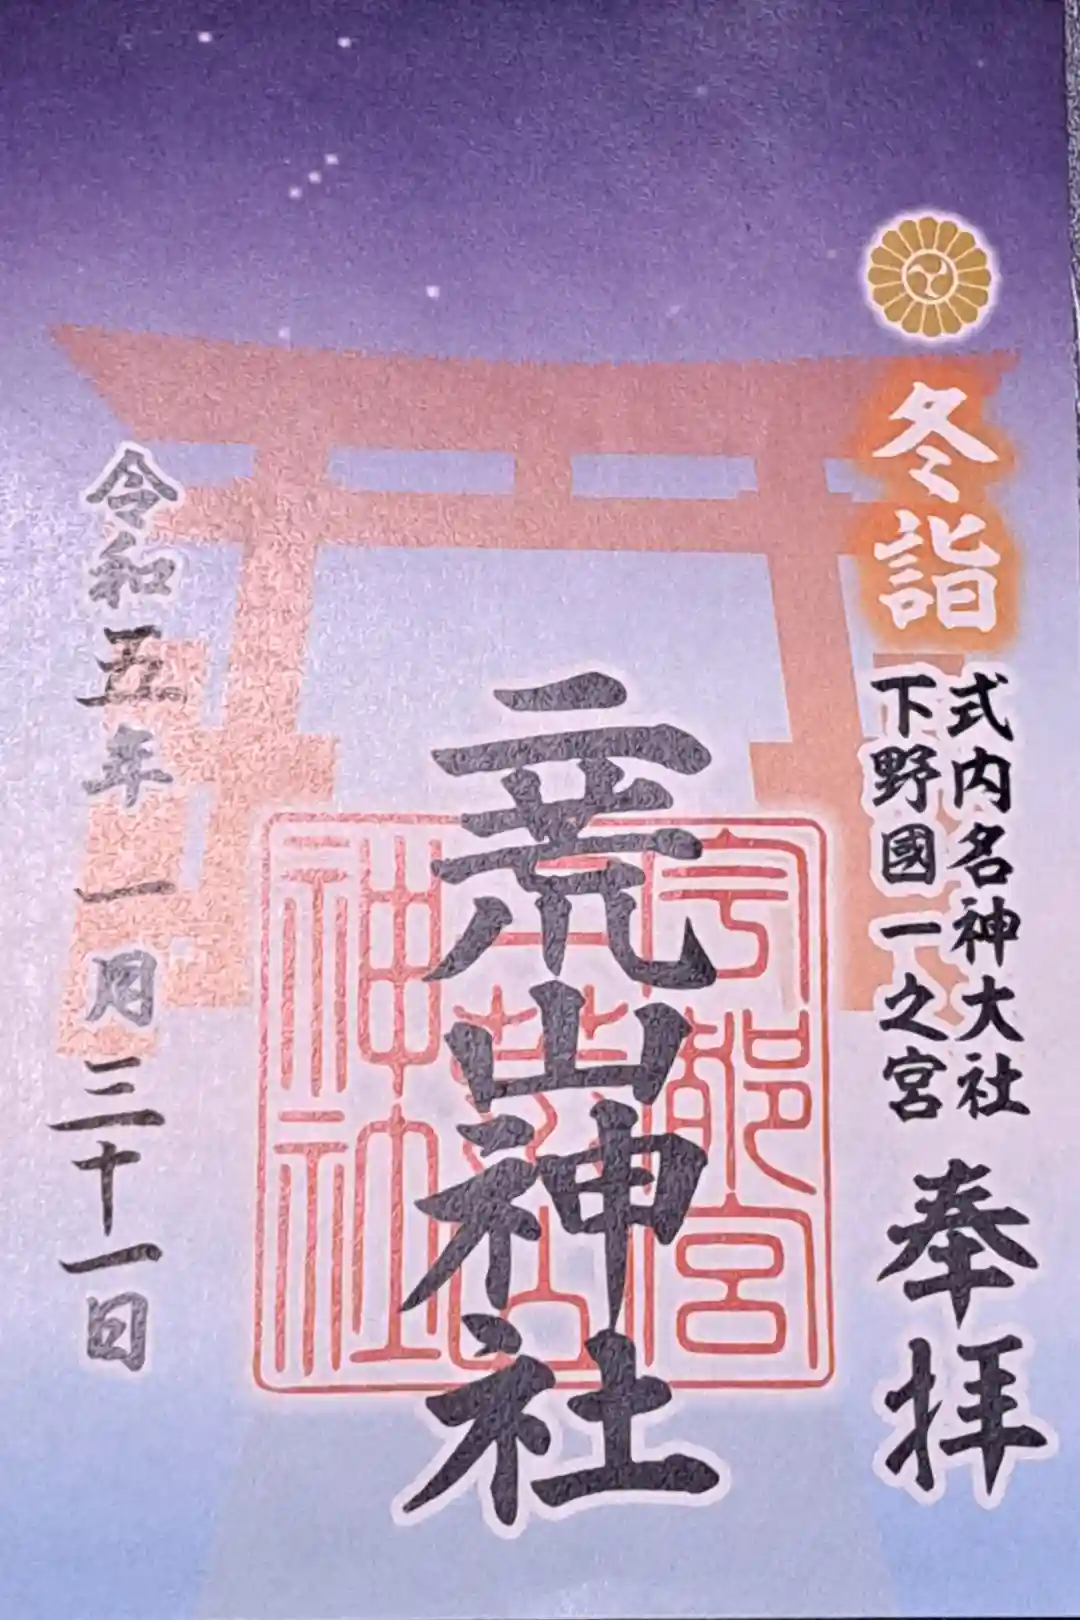 冬詣
式内名神大社
下野國一之宮
奉拝
二荒山神社
宇都宮
二荒山
神社
令和五年一月三十一日